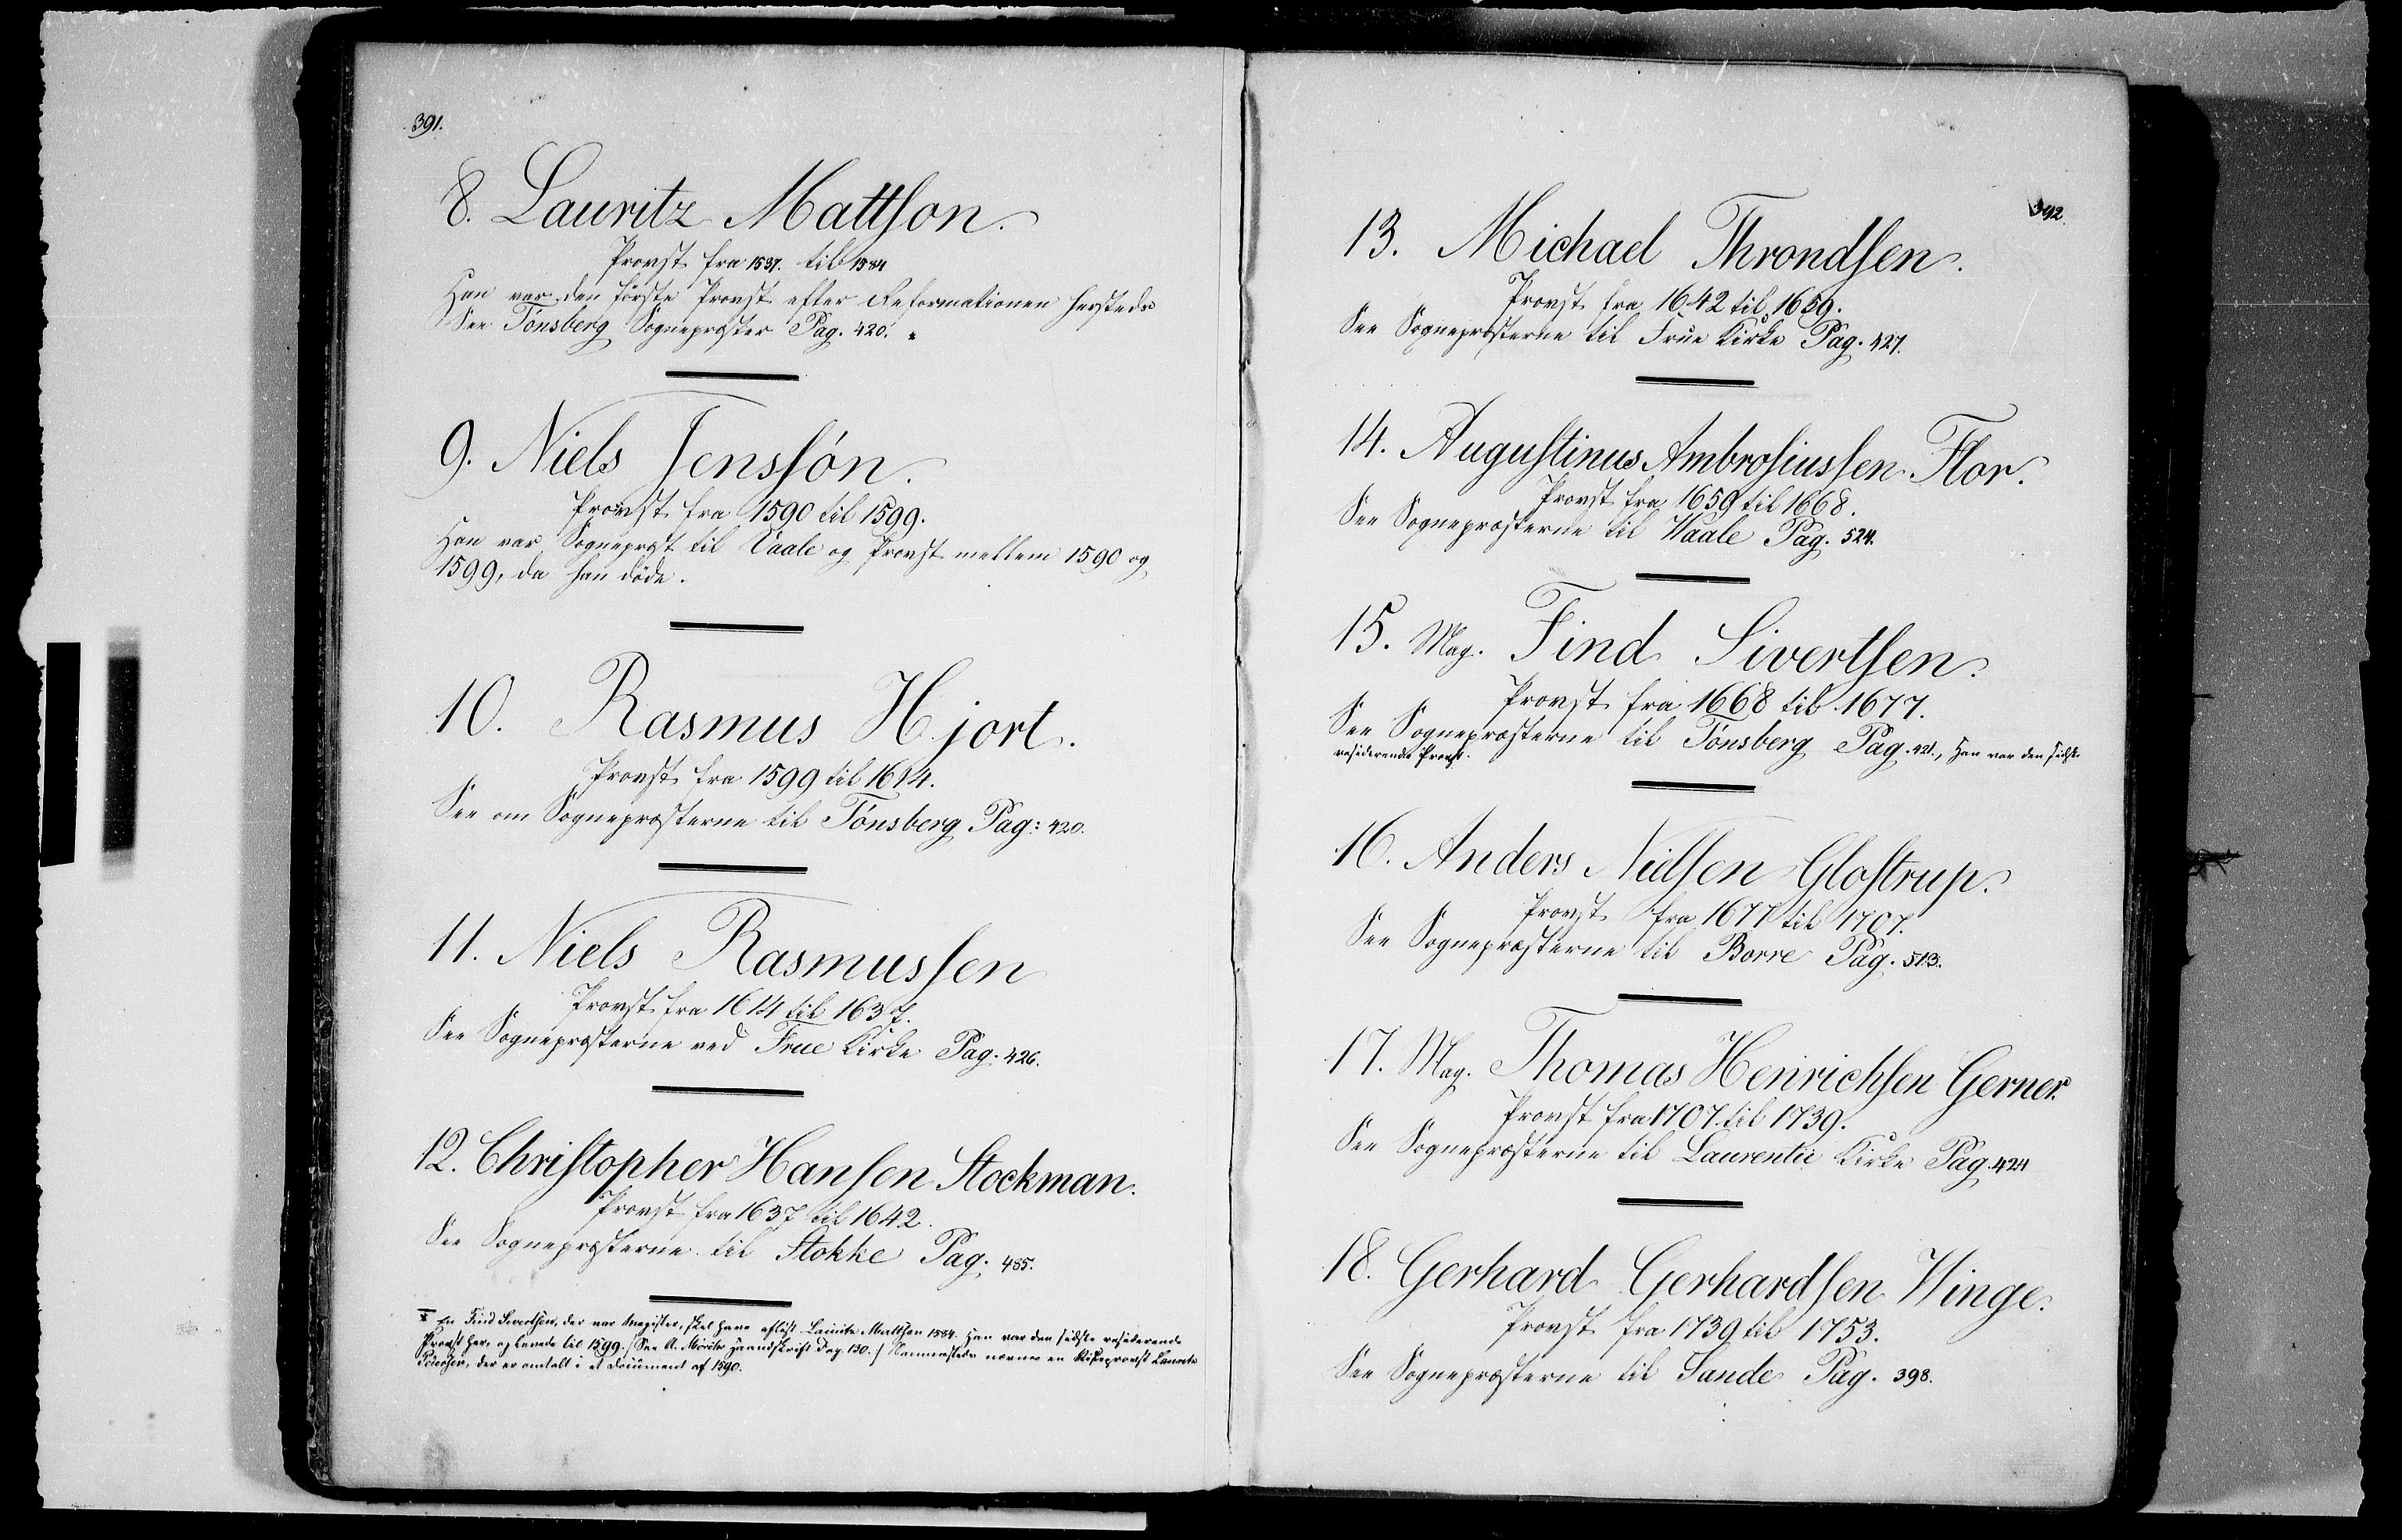 391.
8. Lauritz Mattson.
Provst fra 1537. til 1584
Han var den første Provst efter Reformationen hersteds
See Tønsberg Sognepræster Pag. 420.
9. Niels Jenssøn.
Provst fra 1590 til 1599.
Han var Sognepræst til Vaale og Provst mellem 1590 og
1599, da han døde.
10. Rasmus Hjort.
Provst fra 1599 til 1614.
See om Sognepræsterne til Tønsberg Pag: 420.
11. Niels Rasmussen
Provst fra 1614 til 1637.
See Sognepræsterne ved Frue Kirke Pag. 426.
12. Christopher Hansen Stockman.
Provst fra 1637 til 1642.
See Sognepræsterne til Stokke Pag. 485.
En Find Sivertsøn, der var Magister, skal have afløst Lauritz Mattson 1584. Han var den sidste residerende
Provst her, og levede til 1599. See A. Haandskrift Pag. 120. nævnes en
der er omtalt i et Document af 1590.
392.
13. Michael Throndsen.
Provst fra 1642 til 1659.
See Sognepræsterne til Frue Kirke Pag. 427.
14. Augustinus Ambrosiussen Flor.
Provst fra 1659 til 1668.
See Sognepræsterne til Waale Pag. 524.
15. Mag. Find Sivertsen.
Provst fra 1668 til 1677.
See Sognepræsterne til Tønsberg Pag. 421., Han var den sidste
residerende Provst.
16. Anders Nielsen Glostrup.
Provst fra 1677 til 1707.
See Sognepræsterne til Borre Pag. 513.
17. Mag. Thomas Henrichsen Gerner.
Provst fra 1707 til 1739.
See Sognepræsterne til Laurentii Kirke Pag. 424
18. Gerhard Gerhardsen Winge.
Provst fra 1739 til 1753.
See Sognepræsterne til Sande Pag. 398.